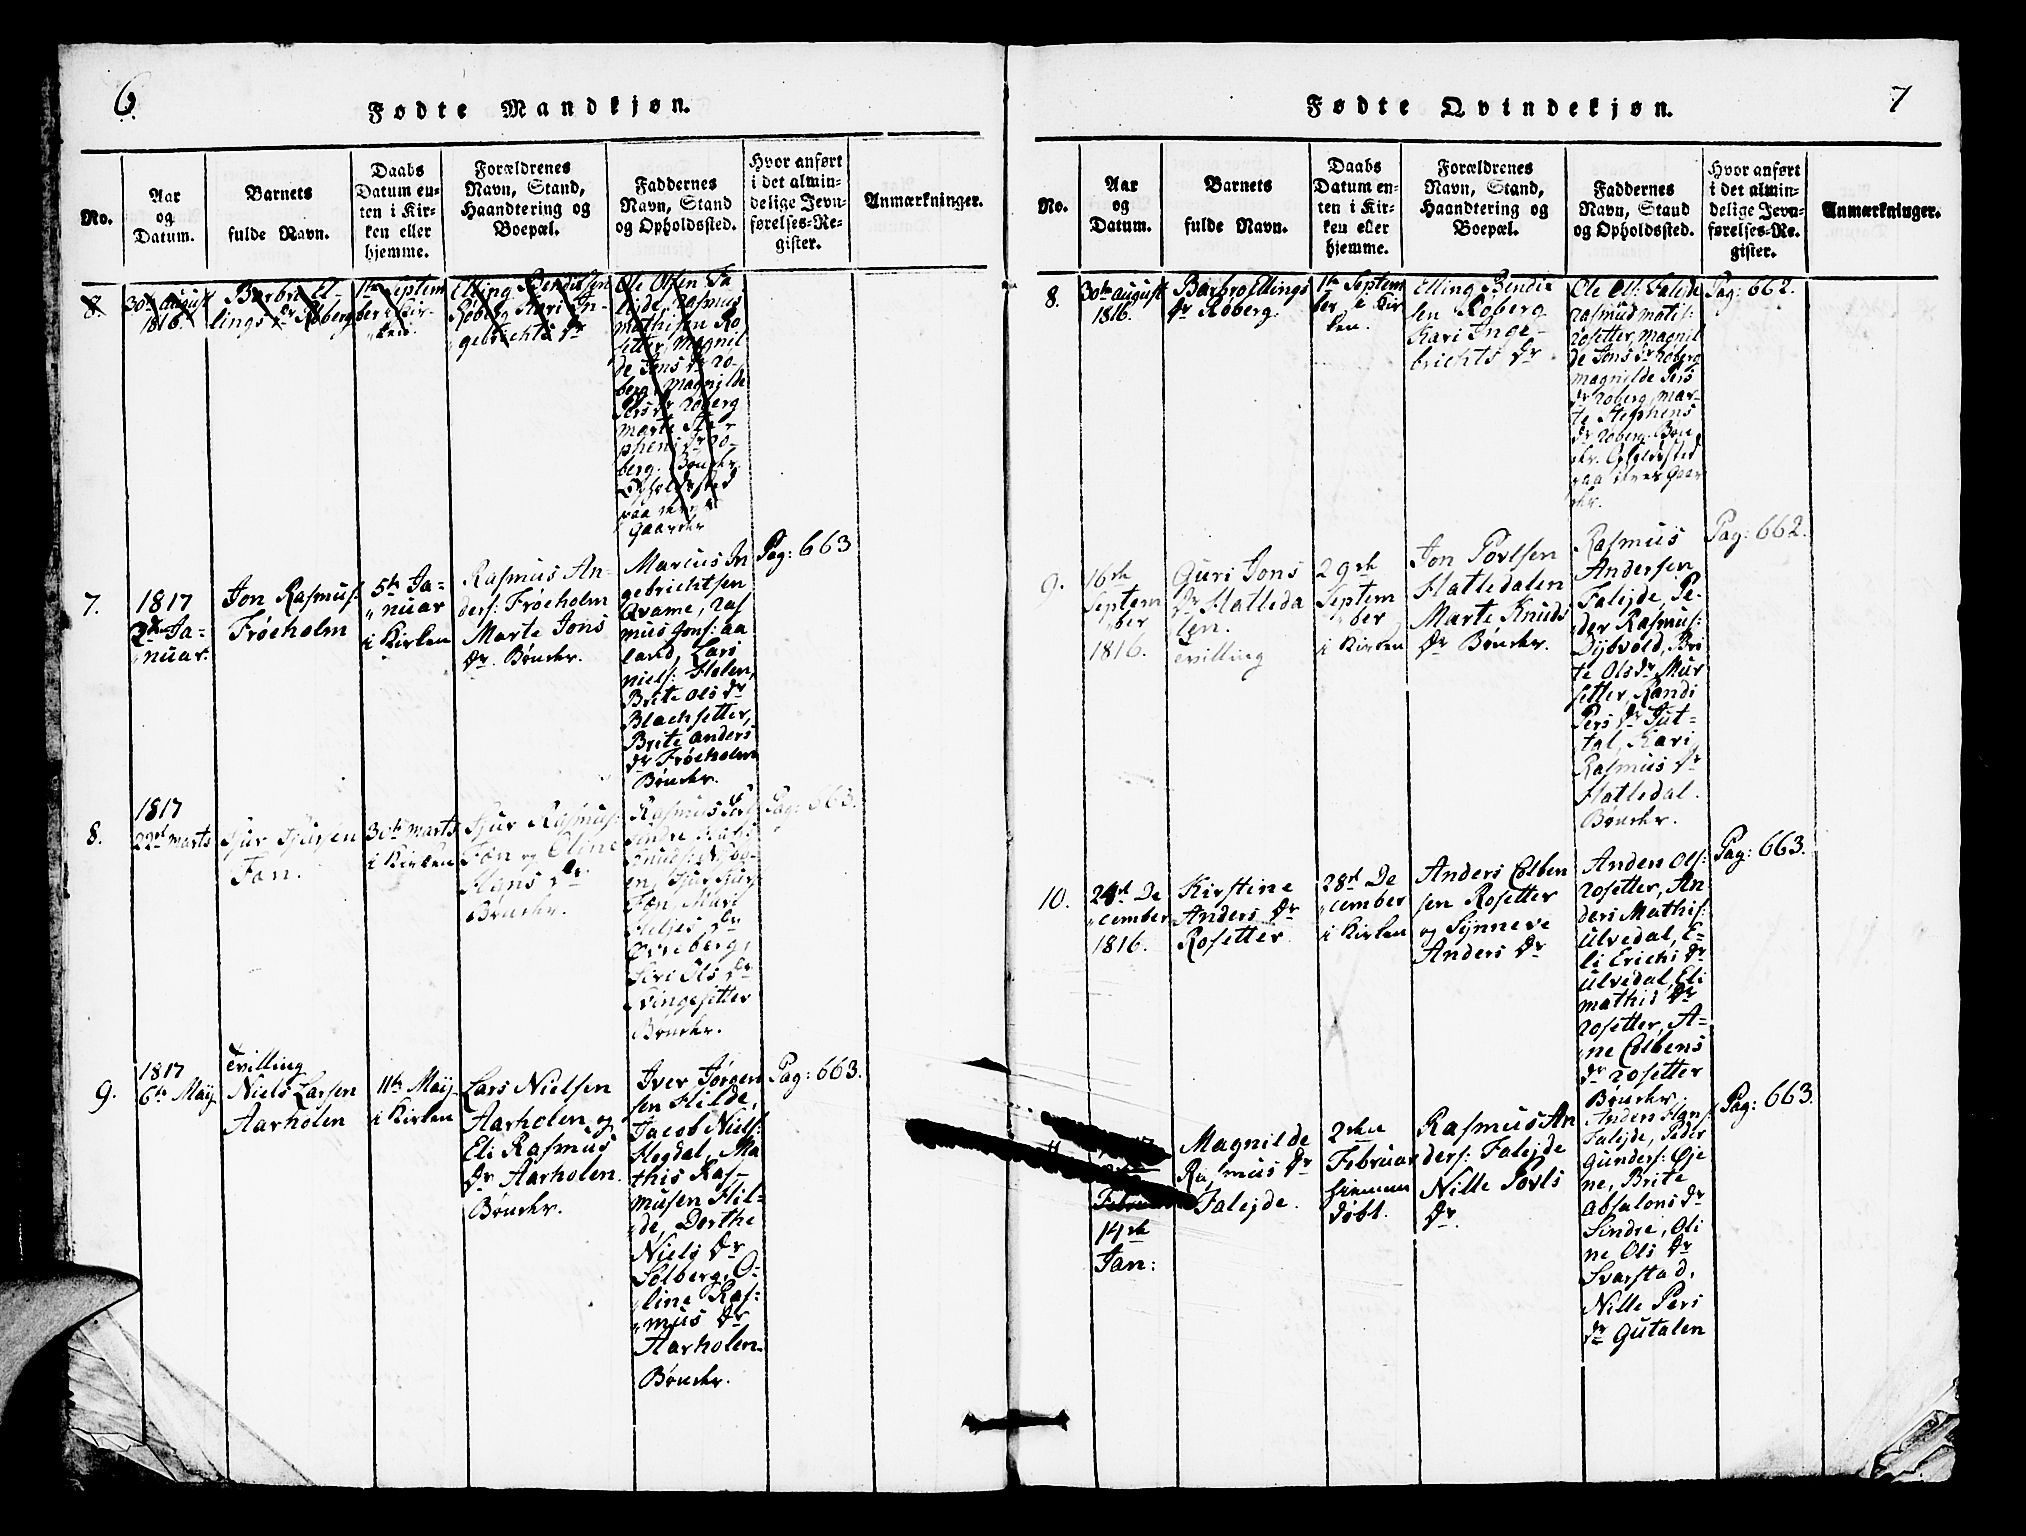 6.
Fødte Mandkjøn.
No.
Aar
og
Datum.
Barnets
fulde Navn.
Daabs
Datum en-
ten i Kir-
ken eller
hjemme.
Forældrenes
Navn, Stand,
Haandtering og
Boepæl.
Faddernes
Navn, Stand
og Opholdssted.
Hvor anført
i det almin-
delige Jevn-
førelses-Re-
gister.
Anmærkninger.
8.
30te august
1816.
Barbro El-
lings Dr Røberg
1te Septem
ber i Kir-
ken.
Elling Bendiksen
Røberg Kari In-
gebrichts Dr
Ole Olsen Fa
lejde, Rasmus
Mathisen Ro
setter, Magnil
de Jons Dr Rø-
berg, Magnilde
Pers Dr Røberg
Marte Ste-
phens Dr Rø-
berg. Bønder
Opholdssted
paa disse
Gaarder
7.
1817
2den Ja-
nuar.
Jon Rasmus:
Frøeholm
5te Ja-
nuar
i Kirken
Rasmus An-
ders: Frøeholm
Marte Jons
Dr. Bønder.
Marcus In
gebrichtsen
Qvame, Ras
mus Jons: Aa
land, Lars
Niels: Holen,
Brite Ols Dr
Blachsetter,
Brite Anders
Dr Frøeholm
Bønder.
Pag: 663
8.
1817
22de Marts
Sjur Sjursen
Føn.
30te Marts
i Kirken
Sjur Rasmus:
Føn og Eline
Hans Dr.
Bønder.
Rasmus
Føn, Mari
Heljes Dr
Øvreberg,
Siri Ols Dr
Svingesetter
Bønder.
Pag: 663.
9.
1817
6te May
Tvilling
Niels Larsen
Aarholen
11te May
i Kirken
Lars Nielsen
Aarholen og
Eli Rasmus
Dr Aarholen.
Bønder.
Iver Jørgen
sen Hilde,
Jacob Niels:
Hegdal, Ma
this Ras-
musen Hil-
de, Dorthe
Niels Dr
Solberg, O-
line Ras-
mus Dr
Aarholen.
Bønder.
Pag: 663.
7
Fødte Qvindekjøn.
No.
Aar
og
Datum.
Barnets
fulde Navn.
Daabs
Datum en-
ten i Kir-
ken eller
hjemme.
Forældrenes
Navn, Stand,
Haandtering og
Boepæl.
Faddernes
Navn, Stand
og Opholdssted.
Hvor anført
i det almin-
delige Jevn-
førelses-Re-
gister.
Anmærkninger.
8.
30te August
1816.
Barbro Ellings
Dr Røberg.
1te Septem
ber i Kir
ken.
Elling Bendik
sen Røberg
Kari Inge-
brichts Dr
Ole Ols: Falejde
Rasmus Matis:
Rosetter, Magnil
de Jons Dr Røberg
Magnilde Pers
Dr Røberg, Mar-
te Stephens
Dr Røberg. Bøn
der. Opholdssted
paa disse Gaar
der.
Pag: 662.
9.
16de
Septem
ber
1816.
Guri Jons
Dr Hatleda
len.
Tvilling
29de
Septem
ber
i Kirken
Jon Povlsen
Hatledalen
Marte Knuds
Dr Bønder.
Rasmus
Andersen
Falejde, Pe-
der Rasmus:
Dybvold, Bri
te Ols Dr Mur
setter, Randi
Pers Dr Gut-
tal, Kari
Rasmus Dr
Hatledal.
Bønder.
Pag: 662.
10.
24de De
cember
1816.
Kirstine
Anders Dr
Rosetter
28de De
cember
i Kirken
Anders Colben
sen Rosetter
og Synneve
Anders Dr
Anders Ols:
Rosetter, An
ders Mathis:
Ulvedal, E-
li Erichs Dr
Ulvedal, Eli
Mathis Dr
Rosetter, A-
ne Colbens
Dr Rosetter
Bønder.
Pag: 663.
11
Februar
14de
Jan:
Magnilde
Rasmus Dr
Falejde.
2den
Februar
hiemme
døbt.
Rasmus An
ders: Falejde
Nille Povls
Dr.
Anders Hans:
Falejde, Peder
Gunders: Eje
ne, Brite
Absalons Dr
Sindre, Oli
ne Ols Dr
Svarstad,
Nille Pers
Dr Gutalen
Pag: 663.